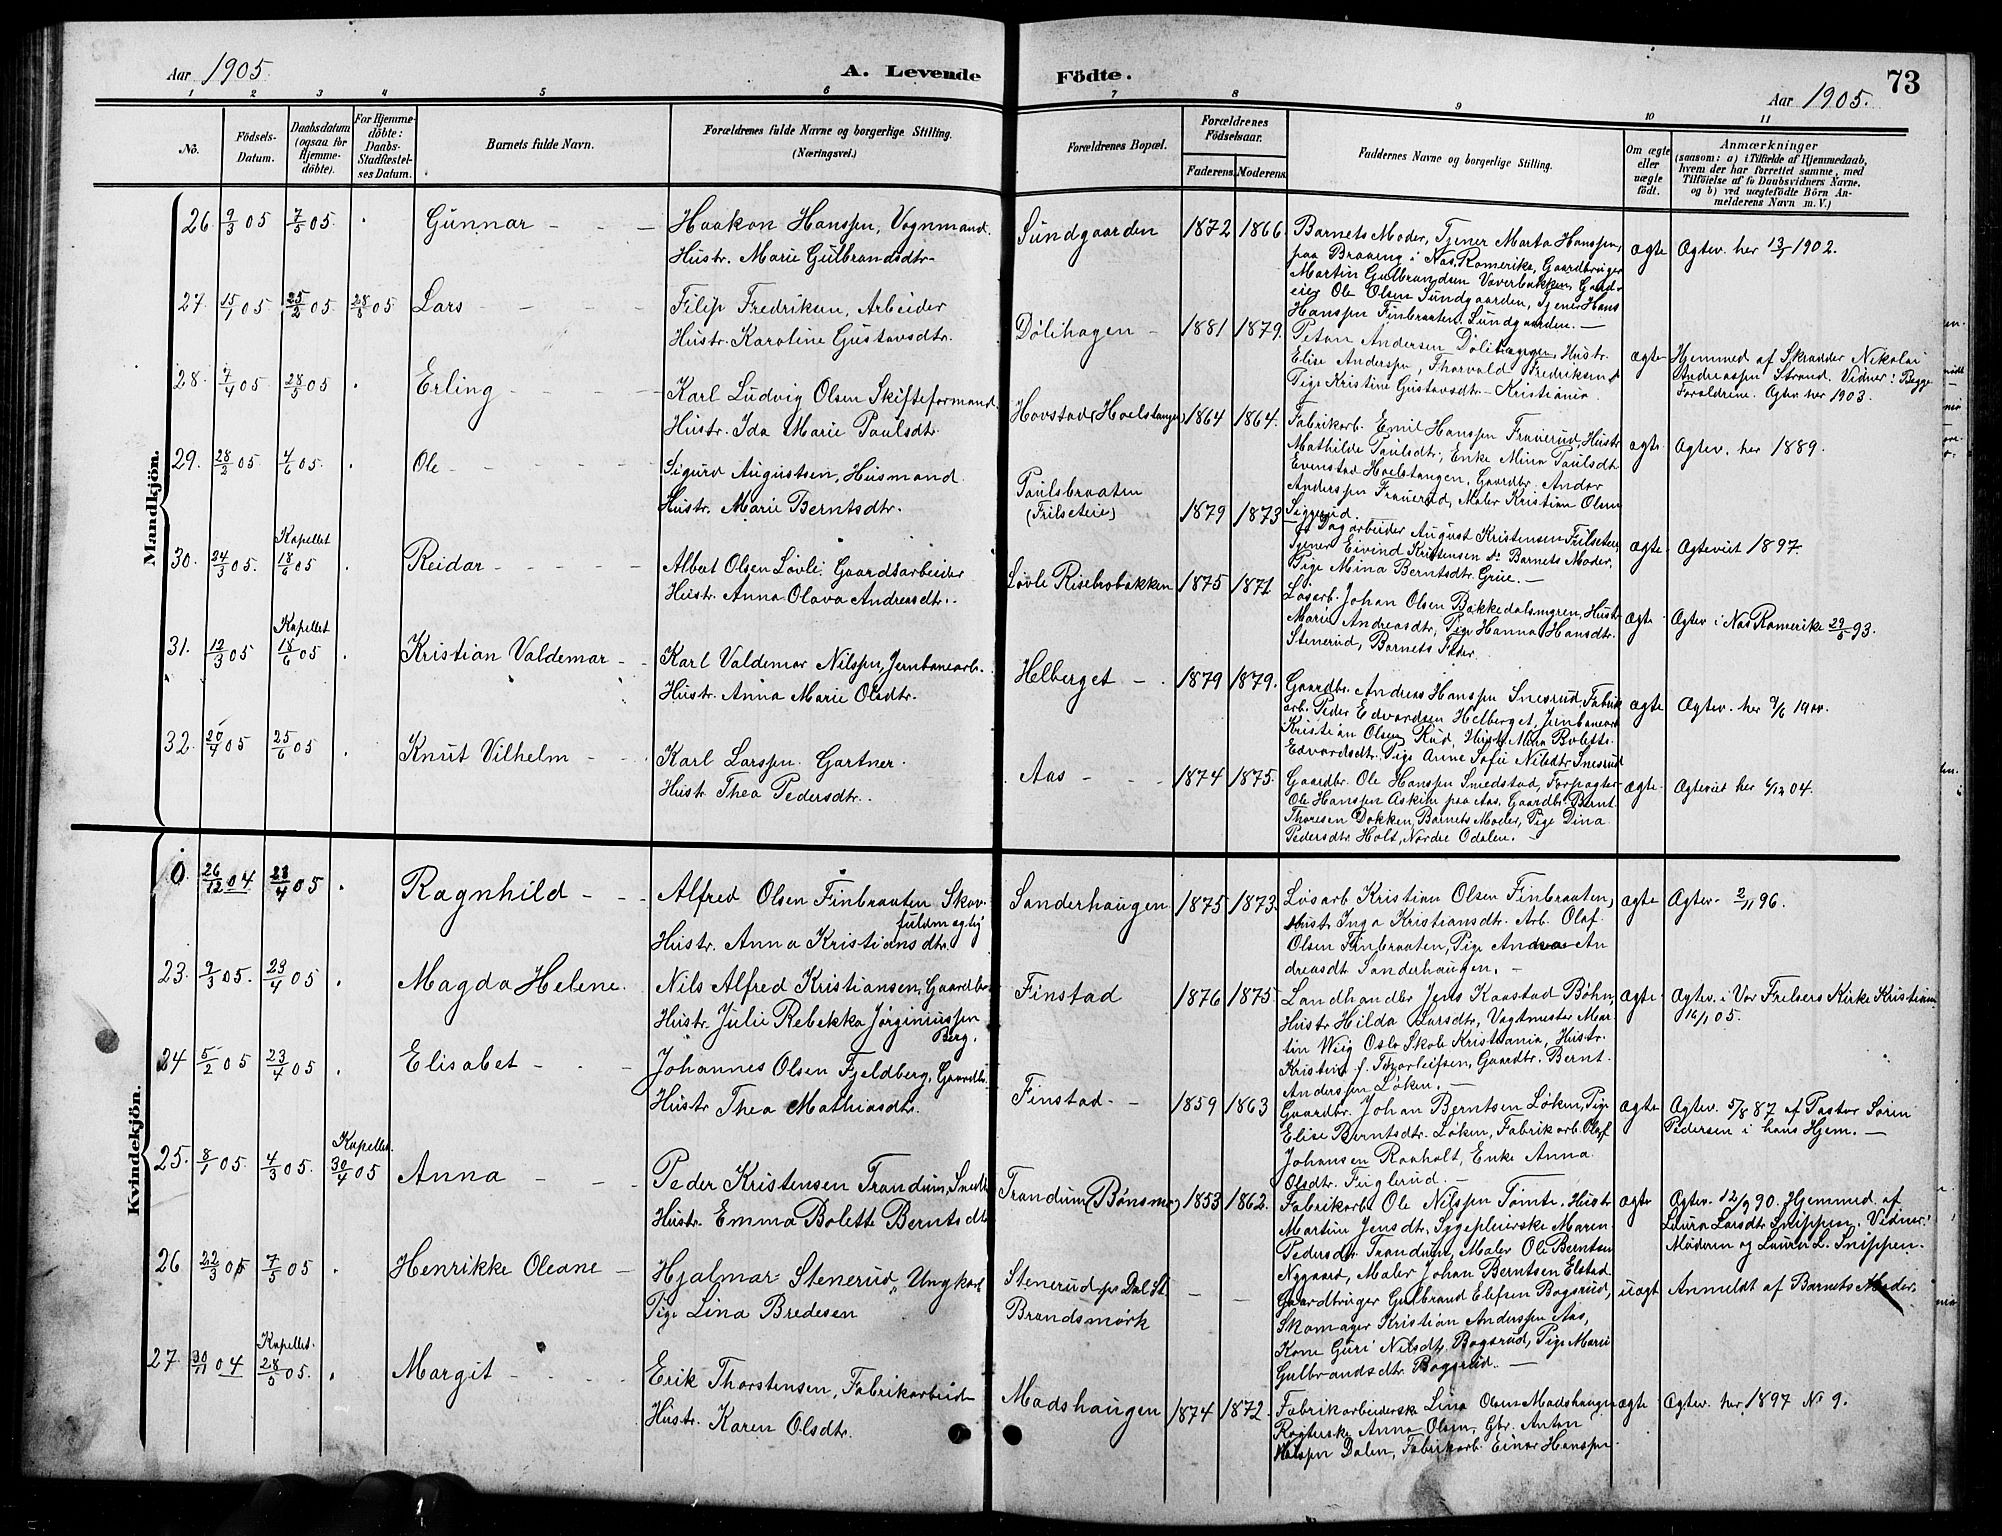 Aar 1905.
A. Levende Födte.
73
Aar 1905.
1 2 3 4 5 6 7 8 9 10 11
No.
Födsels-
Datum.
Daabsdatum
(ogsaa for
Hjemme-
döbte).
For Hjemme-
döbte:
Daabs-
Stadfæstel-
ses Datum.
Barnets fulde Navn.
Forældrenes fulde Navne og borgerlige Stilling.
(Næringsvei.)
Forældrenes Bopæl.
Forældrenes
Födselsaar.
Faderens.
Moderens.
Faddernes Navne og borgerlige Stilling.
Om ægte
eller
uægte
födt.
Anmærkninger
(saasom: a) i Tilfælde af Hjemmedaab,
hvem der har forrettet samme, med
Tilföielse af to Daabsvidners Navne,
og b) ved uægtefödte Börn An-
melderens Navn m. V.)
Mandkjön.
26 9/3 05 7/5 05. Gunnar
Haakon Hanssen, Vognmand.
Hustr. Marie Gulbrandsdtr.
Sundgaarden 1872 1866
Barnets Moder, Tjener Marta Hanssen,
paa Braaing i Nas, Romerike, Gaardbruger
Martin Gulbrandsen Vaverbakken, Gaard-
eier Ole Olsen Sundgaarden, Tjener Hans
Hanssen Finbraaten Sundgaarden.
ægte Ægtev. her 13/7 1902.
27. 15/1 05 25/2 05 28/5 05 Lars
Filip Fredriksen, Arbeider
Hustr. Karoline Gustavsdtr.
Dölihagen 1881 1879.
Petan Andersen Dölihagen, Hustr.
Elise Anderssen, Thorvald Fredriksen,
Pige Kristine Gustavsdtr Kristiania.
ægte Hjemmed. af Skrædder Nikolai
Andreassen Strand. Vidner: Begge
Foræ­ldrene. Ægtev. her 1903.
28. 7/4 05 28/5 05 Erling
Karl Ludvig Olsen Skifteformand.
Hustr. Ida Marie Paulsdtr.
Hovstad (Hoelstangen) 1864 1864.
Fabrikarb. Emil Hanssen Frauerud, Hustr
Mathilde Paulsdtr., Enke Mina Paulsdt.
Evenstad Hoelstangen, Gaardbr. Andor
Anderssen Frauerud, Maler Kristian Olsen
Siggerud.
ægte Ægtev. her 1889.
29. 28/2 05 4/6 05. Ole
Sigurd Augustsen, Husmand.
Hustr. Marie Berntsdtr.
Paulsbraaten
(Frilseteie) 1879 1873
Dagarbeider August Kristensen Frilseteie,
Tjener Eivind Kristensen do. Barnets Moder,
Pige Mina Berntsdtr. Grue.
ægte. Ægteviet 1897.
30. 24/3 05. Kapellet 18/6 05 Reidar
Albert Olsen Lövli. Gaardsarbeider
Hustr. Anna Olava Andreasdtr.
Lövli Risebrobakken 1875 1871
Lösarb. Johan Olsen Bakkedalsmyren, Hustr
Marie Andreasdtr., Pige Hanna Hansdtr.
Stenerud, Barnets Fader.
ægte. Ægtev. i Nas Romerike 29/5 93.
31. 12/3 05 Kapellet 18/6 05 Kristian Valdemar
Karl Valdemar Nilssen, Jernbanearb.
Hustr. Anna Marie Olsdtr.
Helberget 1879 1879.
Gaardbr. Andreas Hanssen Snesrud, Fabrik
arb. Peder Edvardsen Helberget, Jernbanearb
Kristian Olsen Rud, Hustr. Mina Bolette
Edvardsdtr. Pige Anne Sofie Nilsdtr Snesrud
ægte Ægtev. her 9/6 1900.
32. 20/4 05 25/6 05 Knut Vilhelm
Karl Larssen. Gartner.
Hustr. Thea Pedersdtr.
Aas 1874 1875.
Gaardbr. Ole Hanssen Smedstad, Forpagter
Ole Hanssen Askim paa Aas, Gaardbr. Bernt
Thoresen Dokken, Barnets Moder, Pige Dina
Pedersdtr Holt, Nordre Odalen.
ægte. Ægteviet her 6/12 04.
Kvindekjön.
26/12 04 23/4 05 Ragnhild
Alfred Olsen Finbraaten Skov-
fuldmægtig
Hustr. Anna Kristiansdtr.
Sanderhaugen 1875 1873.
Lösarb Kristian Olsen Finbraaten,
Hustr Inga Kristiansdtr. Arb. Olaf
Olsen Finbraaten, Pige Andrea An
dreasdt Sanderhaugen.
ægte Ægtev. 2/11 96.
23. 9/3 05. 23/4 05 Magda Helene.
Nils Alfred Kristiansen, Gaardbr
Hustr. Julie Rebekka Jørginiussen
Berg.
Finstad 1876 1875.
Landhandler Jens Kaastad Böhn,
Hustr Hilda Larsdtr, Vagtmester Mar-
tin Weig Oslo Skole Kristiania, Hustr.
Kristine f. Thorleifsen, Gaardbr. Bernt
Anderssen Löken.
ægte. Ægtev. i Vor Frelsers Kirke Kristiania
16/1 05.
24 5/2 05 23/4 05 Elisabet
Johannes Olsen Fjeldberg, Gaardb.
Hustr Thea Mathiasdtr.
Finstad. 1859 1863
Gaardbr. Johan Berntsen Löken, Pige
Elise Berntsdtr. Löken, Fabrikarb. Olaf
Johansen Raaholt, Enke Anna
Olsdtr. Fuglerud.
ægte Ægtev. 5/8 87 af Pastor Sören
Pedersen i hans Hjem.
25. 8/1 05. 4/3 05. Kapellet. 30/4 05 Anna
Peder Kristensen Trandum, Smed
Hustr. Emma Bolette Berntsdt
Trandum (Bönsmo) 1853 1862.
Fabrikarb. Ole Nilssen Tömte, Hustr
Martine Jensdtr, Sygepleierske Maren
Pedersdtr Trandum, Maler Ole Berntsen
Nygaard, Maler Johan Berntsen Elstad
ægte Ægtev. 12/9 90. Hjemmed. af
Laura Larsdtr Snippen. Vidner:
Moderen og Laura L. Snippen.
26 22/3 05 7/5 05. Henrikke Oleane
Hjalmar Stenerud, Ungkarl
Pige Lina Bredesen
Stenerud pr Dal St.
Brandsmörk
Gaardbruger Gulbrand Elefsen Bogsrud,
Skomager Kristian Anderssen Aas,
Kone Guri Nilsdt. Bogsrud, Pige Marie
Gulbrandsdtr. Bogsrud.
uægt Anmeldt af Barnets Moder.
27 30/11 04 Kapellet. 28/5 05. Margit
Erik Thorstensen, Fabrikarbeid
Hustr. Karen Olsdtr.
Madshaugen 1874 1872.
Fabrikarbeiderske Lina Olsen Madshaugen
Anna Olsen, Gbr. Anton
Dalen, Fabrikarb. Einar Hanssen
ægte Ægtev. her 1897 No 9.